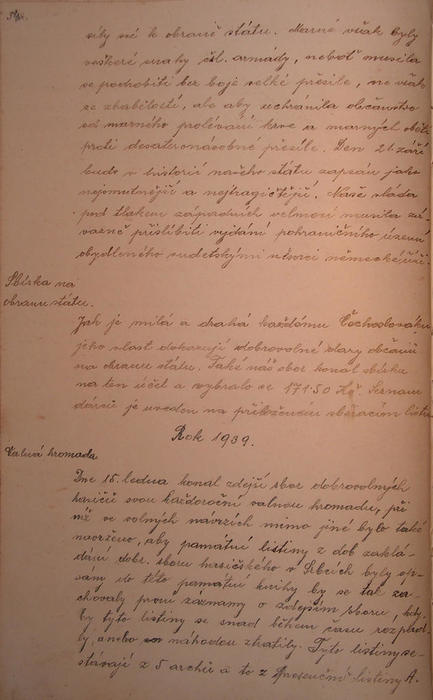 síly své k obraně státu. Marné však byly
veškeré snahy čsl. armády, neboť musila
se podrobiti bez boje velké přesile, ne však
ze zbabělosti, ale aby uchránila občanstvo
od marného prolévání krve a marných obětí
proti desateronásobné přesile. Den 21. září
bude v historii našeho státu zapsán jako
nejsmutnější a nejtragičtější. Naše vláda
pod tlakem západních velmocí musila zá-
vazně přislíbiti vydání pohraničního území
obydleného sudetskými němci německé říši.
Sbírka na
obranu státu.
Jak je milá a drahá každému Čechoslováku
jeho vlast dokazují dobrovolné dary občanů
na obranu státu. Také náš sbor konal sbírku
na ten účel a vybralo se 171·50 Kč. Seznam
dárců je uveden na přiloženém sběracím listu.
Rok 1939.
Valná hromada
Dne 15. ledna konal zdejší sbor dobrovolných
hasičů svou každoroční valnou hromadu, při
níž ve volných návrzích mimo jiné bylo také
navrženo, aby památné listiny z dob zaklá-
dání dobr. sboru hasičského v Srbcích byly op-
sány do této památní knihy by se tak za-
chovaly první záznamy o zdejším sboru, kdy-
by tyto listiny se snad během času rozpad-
ly, anebo náhodou ztratily. Tyto listiny se-
stávají z 5 archů a to z presenční listiny A.